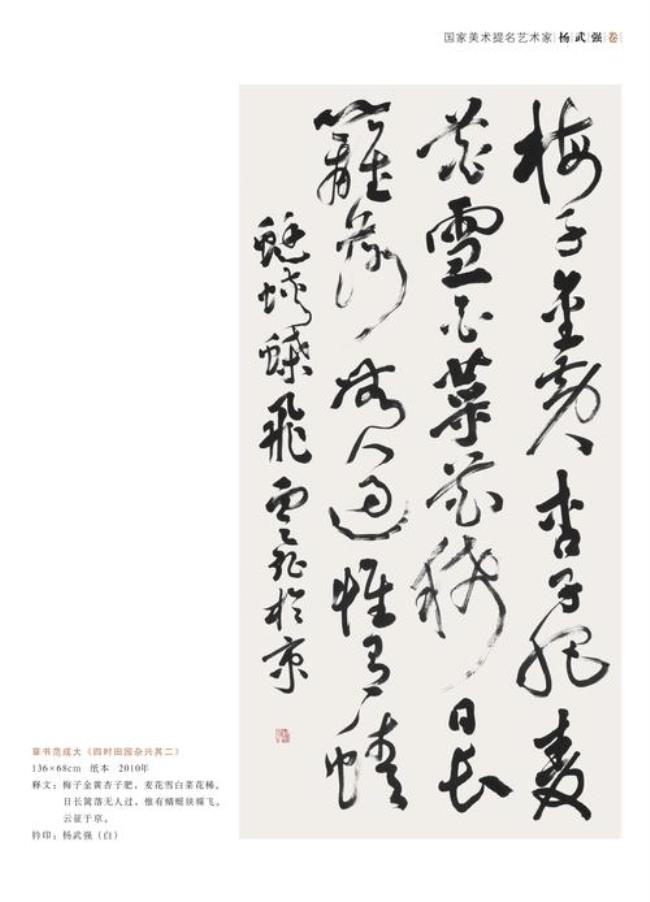 国家美术提名艺术家 杨武强 卷
梅子金黄杏子肥麦
花雪白菜花稀日长
篱落无人过惟有蜻
蜓蛱蝶飞 云征於京
草书范成大《四时田园杂兴其二》
136×68cm 纸本 2010年
释文：梅子金黄杏子肥，麦花雪白菜花稀。
日长篱落无人过，惟有蜻蜓蛱蝶飞。
云征于京。
钤印：杨武强（白）